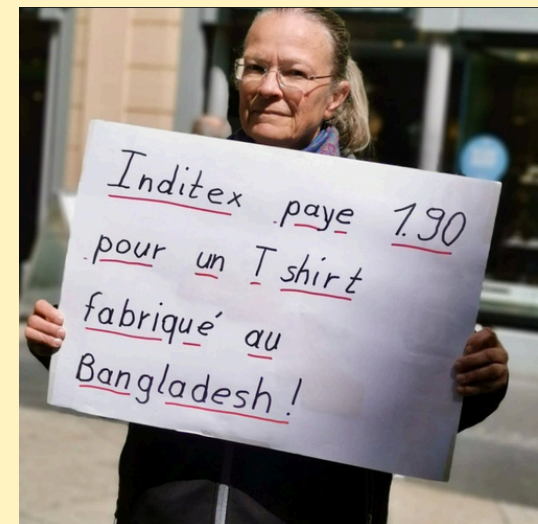 Inditex paye 1.90
pour un T shirt
fabriqué au
Bangladesh!